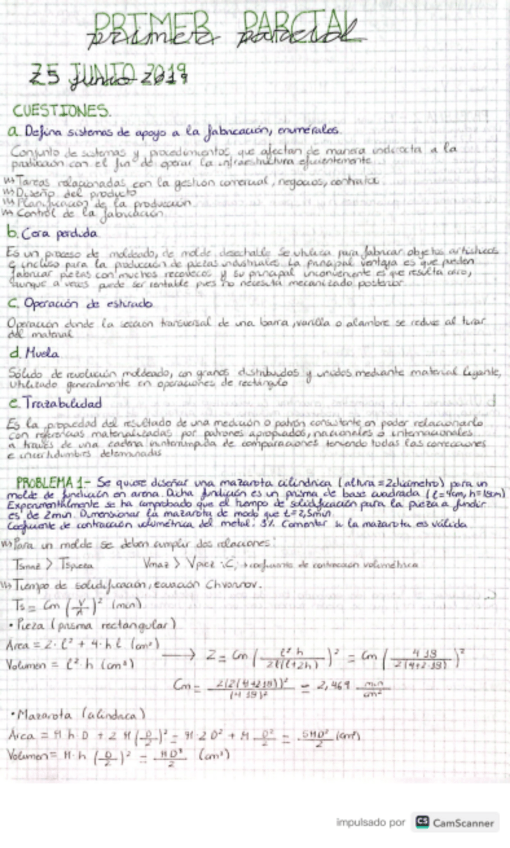 PRIMER PARCIAL
primer parcial
25 JUNIO 2019
CUESTIONES.
a. Defina sistemas de apoyo a la fabricación, enumérelos.
Conjunto de sistemas y procedimientos que afectan de manera indirecta a la
producción con el fin de operar la infraestructura eficientemente.
Tareas relacionadas con la gestión comercial, negocios, contratos
Diseño del producto
Planificación de la producción
Control de la fabricación.
b. Cera perdida
Es un proceso de moldeado, de molde desechable. Se utiliza para fabricar objetos artísticos
e incluso para la producción de piezas industriales. La principal ventaja es que pueden
fabricar piezas con muchos recovecos y su principal inconveniente es que resulta caro,
aunque a veces puede ser rentable pues no necesita mecanizado posterior
c. Operación de estirado
Operación donde la sección transversal de una barra, varilla o alambre se reduce al tirar
del material
d. Muela
Sólido de revolución moldeado, con granos distribuidos y unidos mediante material ligante,
utilizado generalmente en operaciones de
e. Trazabilidad
Es la propiedad del resultado de una medición o patrón consistente en poder relacionarlo
con referencias materializadas por patrones apropiados, nacionales o internacionales
a través de una cadena ininterrumpida de comparaciones teniendo todas las correcciones
e incertidumbres determinadas
PROBLEMA 1.- Se quiere diseñar una mazarota cilíndrica (altura = 2diámetro) para un
molde de fundición en arena. Dicha fundición es un prisma de base cuadrada (l=4cm, h=18cm)
Experimentalmente se ha comprobado que el tiempo de solidificación para la pieza a fundir
es de 2min. Dimensionar la mazarota de modo que t=2,5min.
Coeficiente de contracción volumétrica del metal: 3%. Comentar si la mazarota es válida.
Para un molde se deben cumplir dos relaciones:
Tsmaz > Tspieza Vmaz > Vpiez · C; → coeficiente de contracción volumétrica
Tiempo de solidificación, ecuación Chvorinov.
Ts = Cm (V/A)² (min)
• Pieza (prisma rectangular)
Área = 2·l² + 4·h·l (cm²)
Volumen = l²·h (cm³) → 2 = Cm (l²h / 2l(l+2h))² = Cm (4·18 / 2(4+2·18))²
Cm = 2(2(4+2·18))² / (4·18)² = 2,469 min/cm²
• Mazarota (cilíndrica)